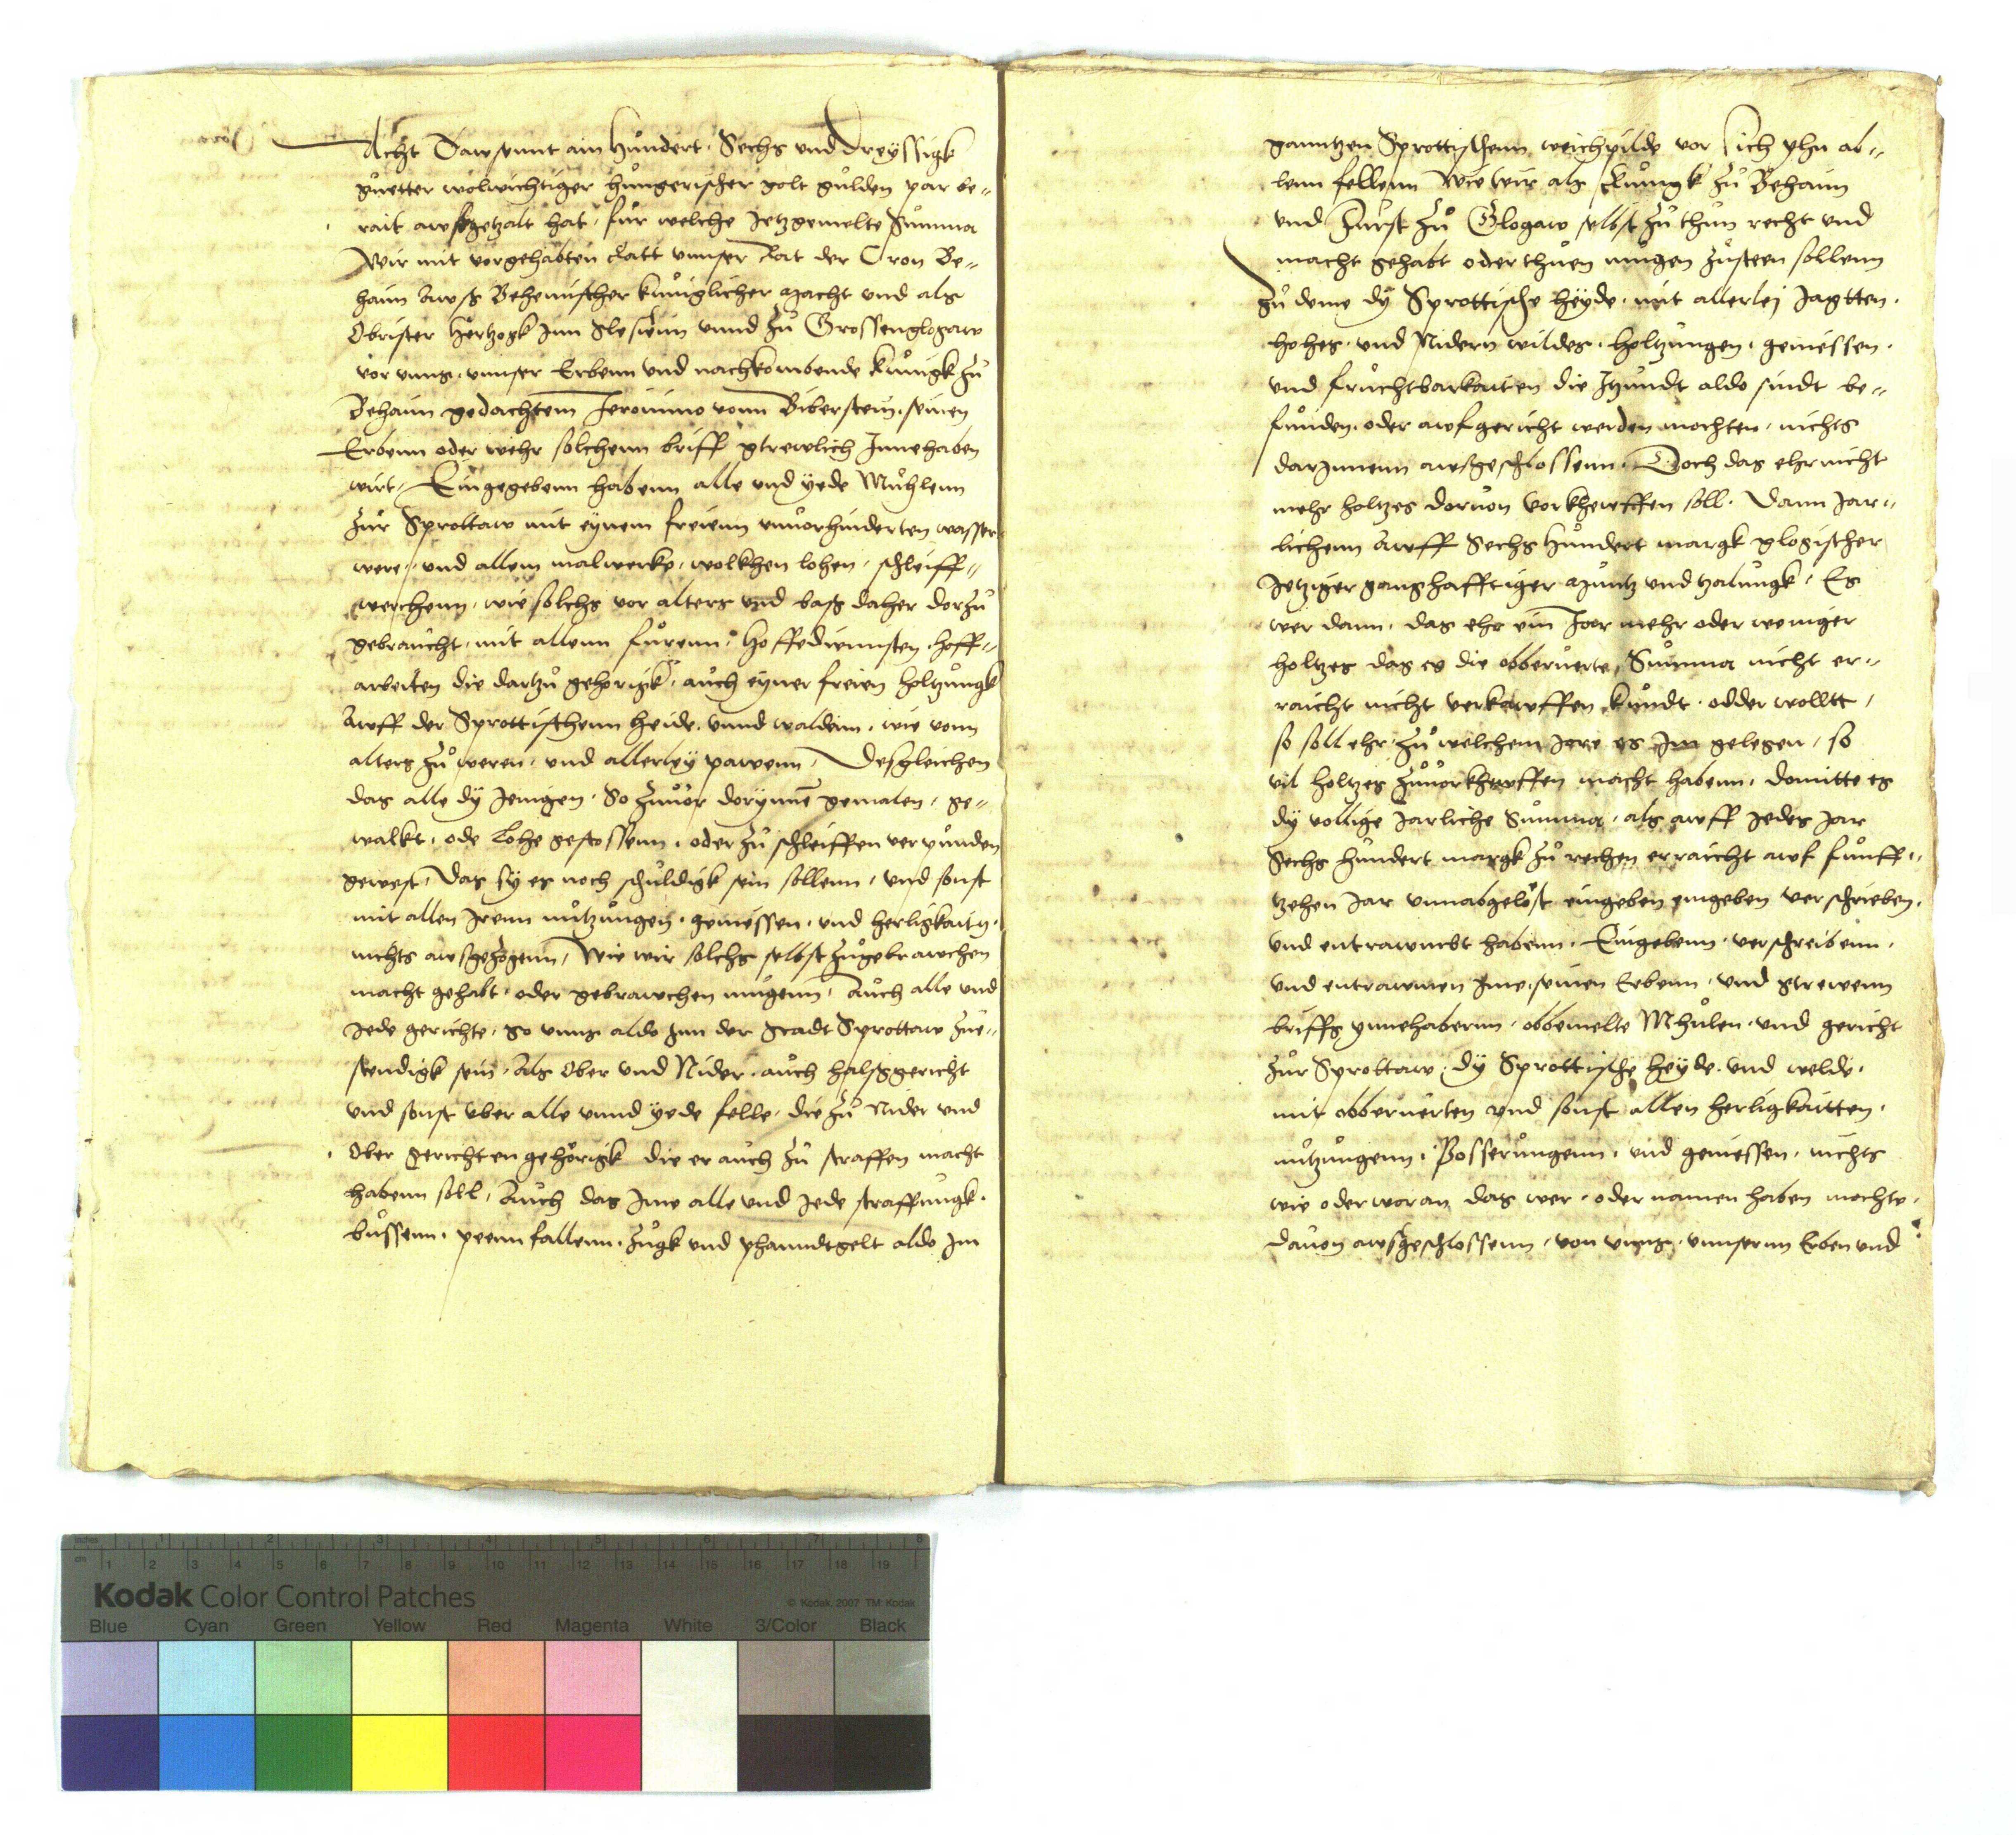 Acht Dawsennt ain hundert Sechs und Dreyssigk
guetter wolwichtiger hungerischer golt gulden par be„
rait awsgetzalt hat, fur welche Jetzgemelte Summa
Wir mit vorgehabten Ratt unnser Rat der Cron Be„
haim Awss Behemischer kuniglicher Macht und als
Obrister hertzogk Inn Slesienn unnd zu Grossenglogaw
vor unns, unnser Erbenn und nachkombende kunigk zu
Behaim gedachtem Jeronimo vonn Biberstein, seinen
Erbenn oder wehr solchenn briff gtrewlich Innehaben
wirt, Eingegebenn habenn alle und yede Muhlenn
zur Sprottaw mit eynem freienn unvorhinderten wasser
were, und allem malwerke, wolkhen lohen, schleiff„
werchenn, wie solchs vor alters und bass daher dorzu
gebraucht, mit allenn furenn, hoffediennsten, hoff„
arbeiten die dartzu gehorigk, auch eyner freien holtzungk
Awff der Sprottischenn heide, unnd waldenn, wie vonn
alters zu weren, und allerley pawenn, Desgleichen
das alle dy Jenigen, So zuvor dorynne gemalen, ge„
walkt, ode Lohe gestossenn, oder zu schleiffen verpunden
gewest, Das sy es noch schuldigk sein sollenn, und sonst
mit allen Irenn nutzungen, geniessen, und herligkaitn,
nichts awssgezogenn, Wie wir solchs selbst zugebrawchen
macht gehabt, oder gebrawchen mugenn, Auch alle und
Jede gerichte, so unns aldo Inn der Stadt Sprottaw zue„
stendigk sein, Als Ober und Nider, auch halssgericht
und sonst uber alle unnd yede felle, die zu Nider und
Ober gerichten gehorigk die er auch zu straffen macht
habenn soll, Auch das Ime alle und Jede straffungk,
bussenn, peenn fallenn, zugk und phanndtgelt aldo Im
ganntzen Sprottischenn weichpilde vor sich yhn al„
lenn fellenn Wie wir als Kunigk zu Behaim
und Furst zu Glogaw selbst zu thun recht und
macht gehabt oder thuen mugen zusteen sollenn
zu deme dy Sprottische heyde, mit allerlej Jagtten,
hohes, und Nidern wildes, holtzungen, geniessen,
und fruchtbarkaiten die Itzundt aldo sindt be„
funden, oder awfgericht werden mochten, nichts
darInnenn awssgeschlossenn, Doch das ehr nicht
mehr holtzes dorvon vorkhewffen soll, Dann Jar„
lichenn Awff Sechs hundert margk glogischer
Jetziger ganghafftiger Muntz und tzalungk, Es
wer dann, das ehr ein Jar mehr oder weniger
holtzes das es die obberuerte Summa nicht er„
raicht nicht verkawffen kundt, odder wolltt,
so soll ehr zu welchem Jare es Im gelegen, so
vil holtzes zuvorkhewffen macht habenn, domitte es
dy vollige Jarliche Summa, als awff Jedes Jar
Sechs hundert margk zu rechen erraicht awf funff„
tzehen Jar unnabgelost eingeben eingeben verschrieben,
und entrawmbt habenn, Eingebenn, verschreibenn,
und entrawmen Ime, seinen Erbenn, und gtrewenn
briffs ynnehabernn, obbemelte Mhulen, und gericht
zur Sprottaw, dy Sprottische heyde, und welde,
mit obberuerten und sonst allen herligkaitten,
nutzungenn, Posserungenn, und geniessen, nichts
wie oder woran, das wer, oder namen haben mochte,
davon awsgeschlossenn, von unns, unnsernn Erben und